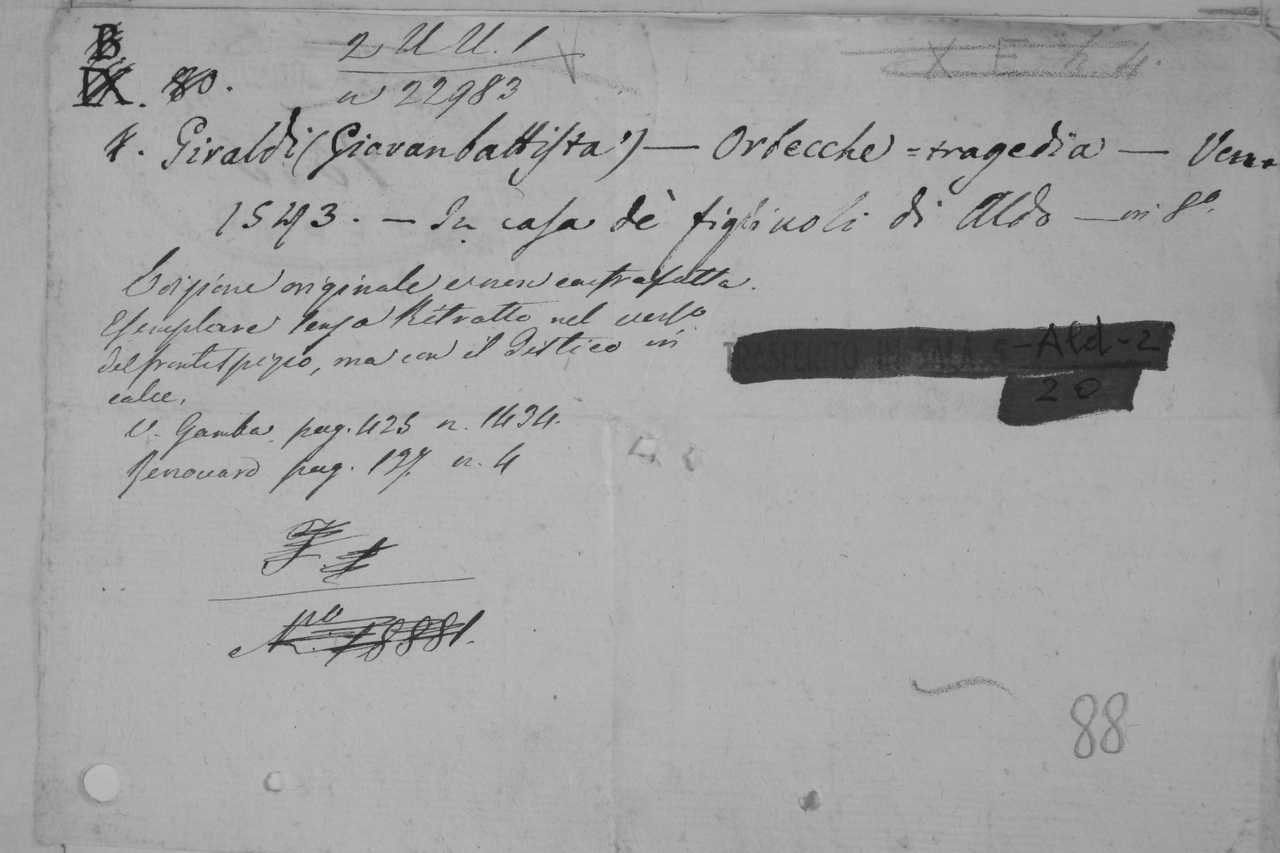 B
IX. 80.
2 U U. 1
n 22983
X E h 4.
4. Giraldi (Giovanbattista) — Orbecche = tragedia — Ven.
1543. — In casa dè figliuoli di Aldo — in 8º.
Edizione originale e non contrafatta.
Esemplare senza Ritratto nel verso
del frontespizio, ma con il Distico in
calce,
V. Gamba pag. 425 n. 1434.
Renouard pag. 127. n. 4
TRASFERITO IN SALA S - Ald - 2
20
F. 1
Nº. 18881.
88